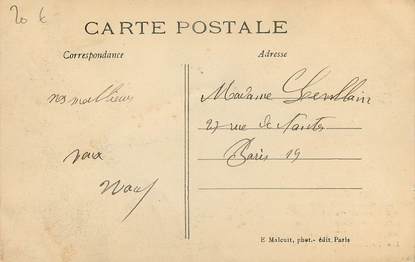 20 €
CARTE POSTALE
Correspondance
Adresse
Madame
27 rue de Nantes
Paris 19
nos meilleurs
E Malcuit, phot.- édit Paris